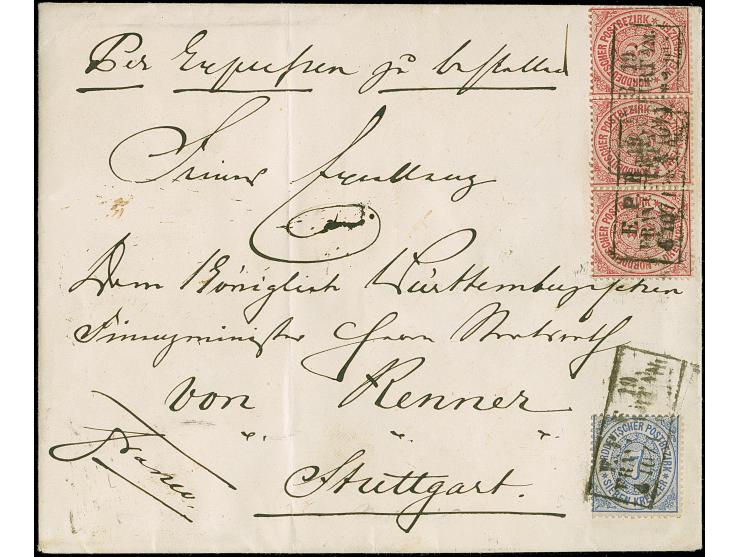 Per Expressen zu bestellen
Seiner Excellenz
Dem Königlich Württembergischen
Finanzminister Herrn Staatsrath
von Renner
Stuttgart.
franco.
NORDDEUTSCHER POSTBEZIRK
NORDDEUTSCHER POSTBEZIRK
NORDDEUTSCHER POSTBEZIRK
NORDDEUTSCHER POSTBEZIRK
SIEBEN KREUZER